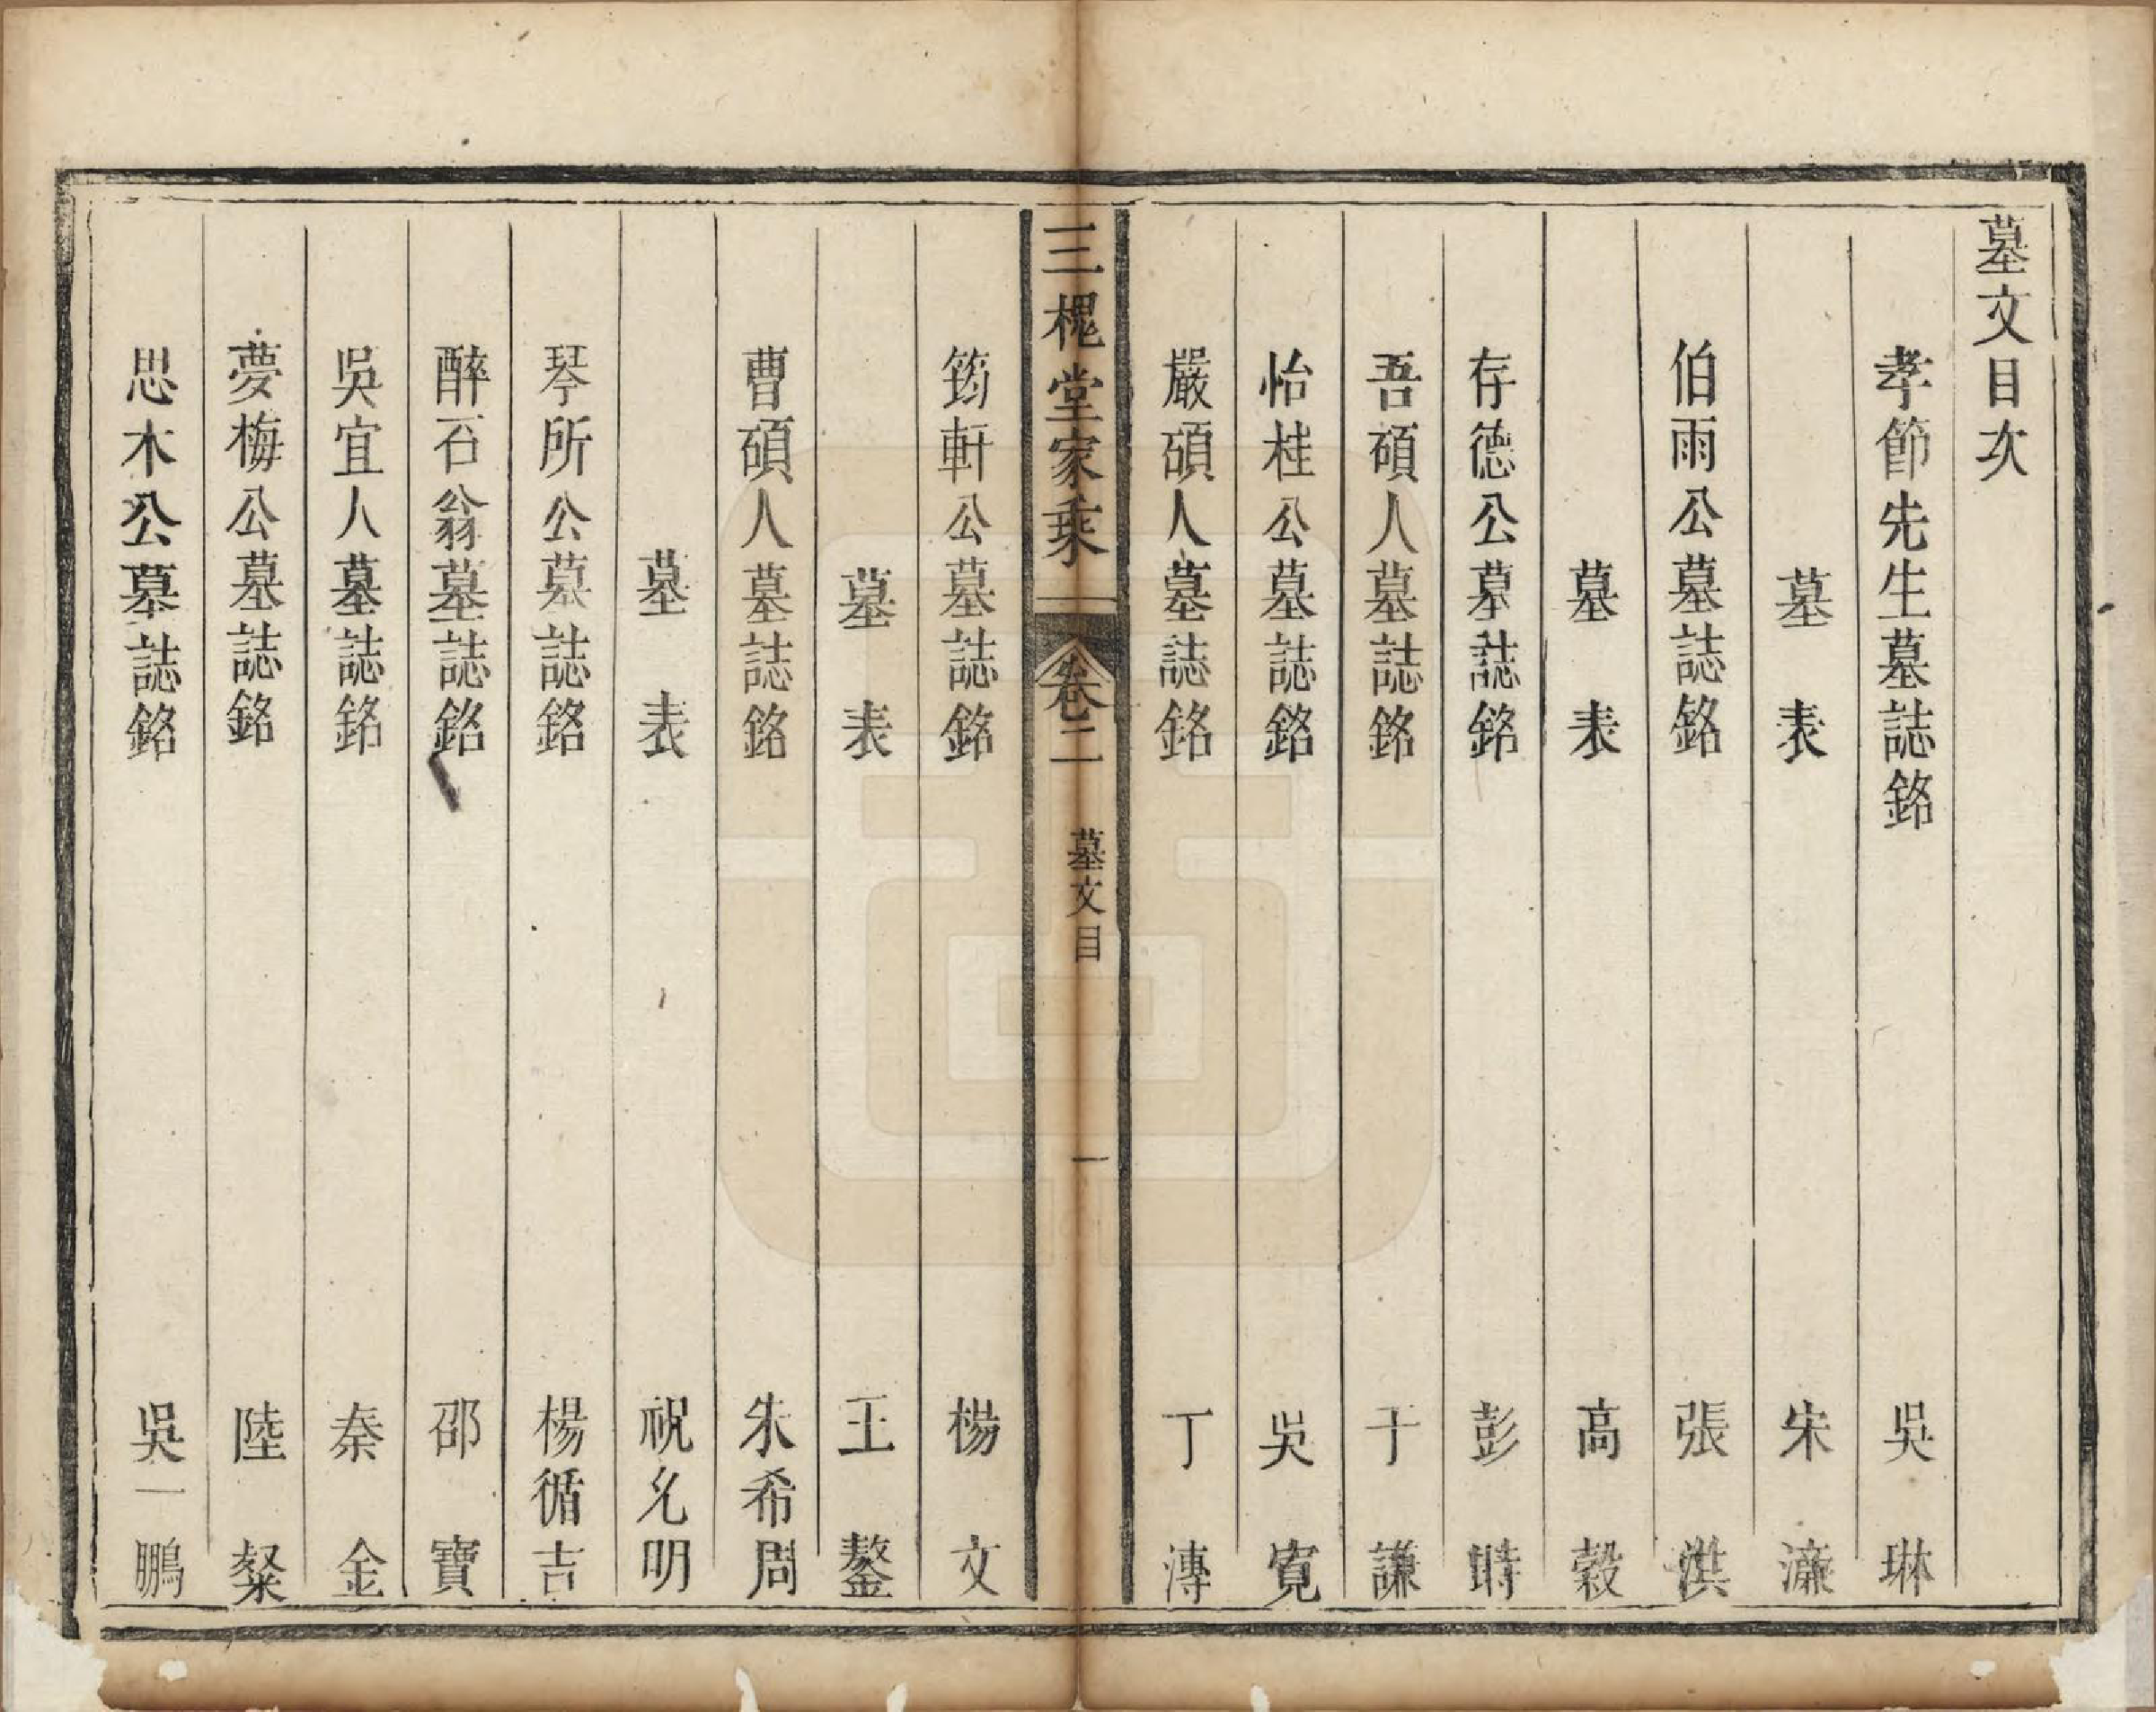 墓文目次
孝節先生墓誌銘 吳琳
墓表 宋濂
伯雨公墓誌銘 張洪
墓表 高穀
存德公墓誌銘 彭時
吾碩人墓誌銘 于謙
怡桂公墓誌銘 吳寬
嚴碩人墓誌銘 丁溥
三槐堂家乘 卷二 墓文目 一
筠軒公墓誌銘 楊文
墓表 王鏊
曹碩人墓誌銘 朱希周
墓表 祝允明
琴所公墓誌銘 楊循吉
醉石翁墓誌銘 邵寶
吳宜人墓誌銘 秦金
夢梅公墓誌銘 陸粲
思木公墓誌銘 吳一鵬